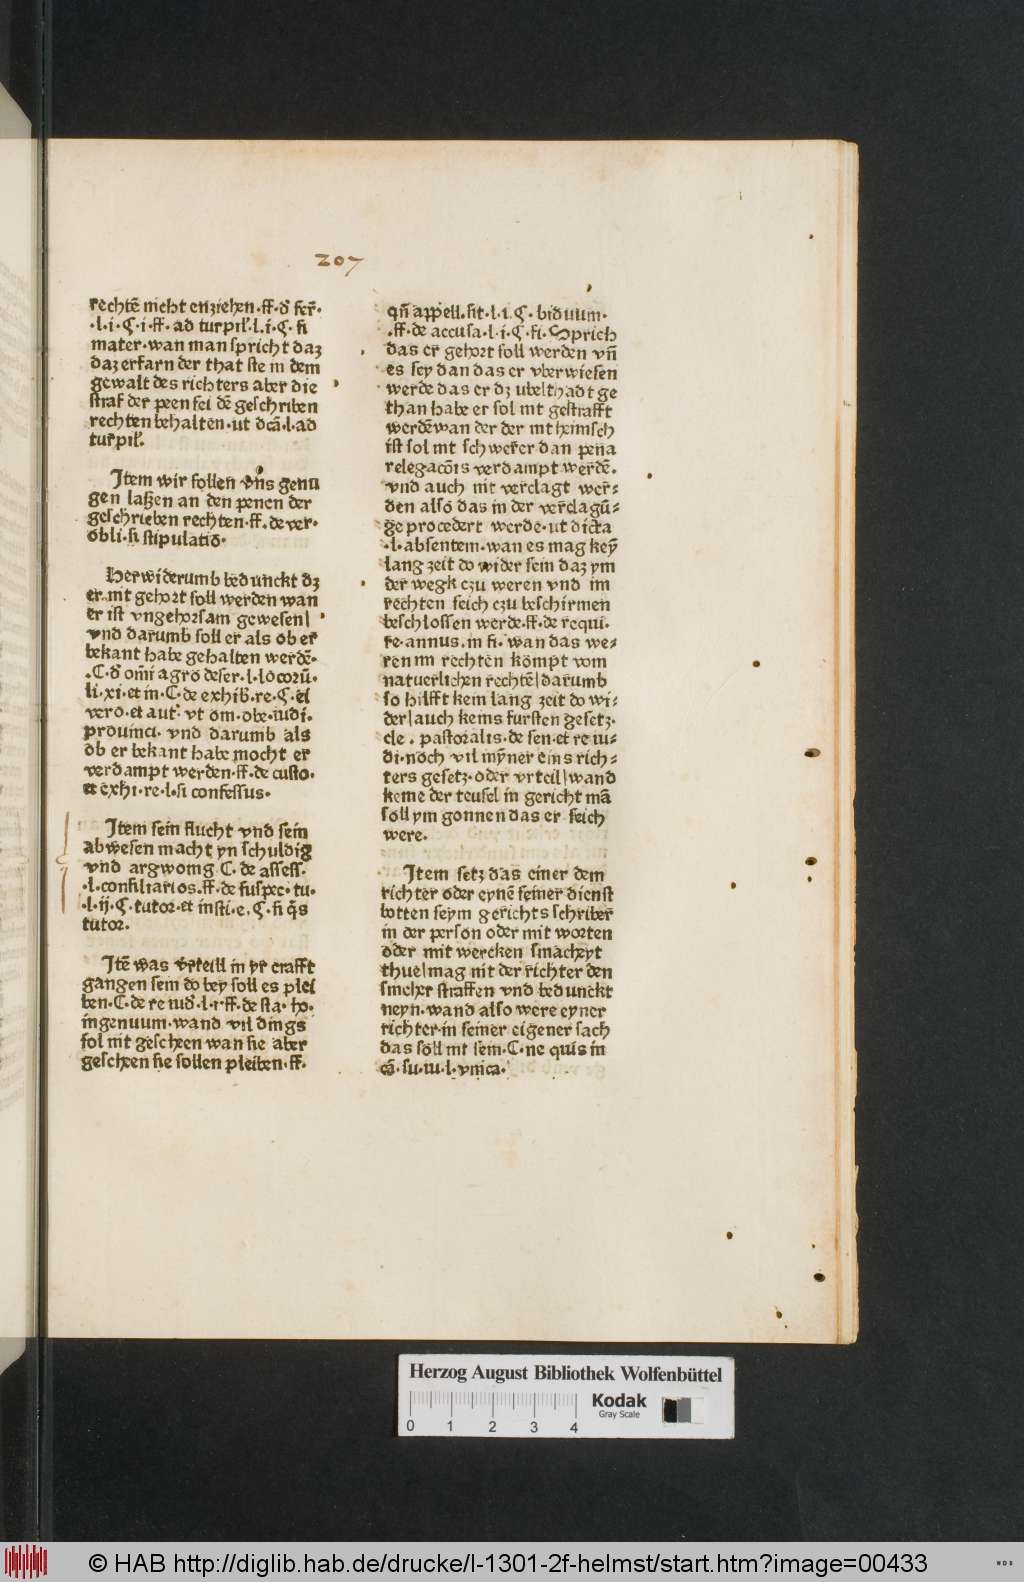 207
rechtē nicht enziehen·ff·d̕ fer̄·
·l·i·Ç·i·ff· ad turpil̕·l·i·Ç· fi
mater·wan man spricht daz
daz erfarn der that ste in dem
gewalt des richters aber die
straf der peen sei dē geschriben
rechten behalten·ut dcā·l·ad
turpil̕·
Item wir sollen vns genu
gen laßen an den penen der
geschrieben rechten·ff·de ver·
obli·si stipulatio·
Herwiderumb bedunckt dz
er nit gehort soll werden wan
er ist vngehorsam gewesen/
vnd darumb soll er als ob er
bekant habe gehalten werdē·
·C·d̕ om̄i agro deser·l·locorū·
li·xi·et in·C·de exhib·re·Ç·ei
vero·et aut̕·vt om·obe·iudi·
prouinci· vnd darumb als
ob er bekant habe mocht er
verdampt werden·ff·de custo·
et exhi·re·l·si confessus·
Item sein flucht vnd sein
abwesen macht yn schuldig
vnd argwonig C·de assess·
·l·consiliarios·ff·de suspec·tu·
·l·ij·Ç·tutor·et insti·e·Ç·si q̄s
tutor·
Itē was vrteill in yr crafft
gangen sein do bey soll es plei
ben·C·de re iud̕·l·i·ff·de sta·ho·
ingenuum·wand vil dings
sol nit gescheen wan sie aber
gescheen sie sollen pleiben·ff·
qn̄ appell·sit·l·i·Ç·biduum·
·ff·de accusa·l·i·Ç·fi·Sprich
das er gehort soll werden vn̄
es sey dan das er vberwiesen
werde das er dz ubelthadt ge
than habe er sol nit gestrafft
werdē wan der der nit heimsch
ist sol nit schwerer dan pena
relegacōis verdampt werdē·
vnd auch nit verclagt wer=
den also das in der verclagū=
ge procedert werde·ut dicta
·l·absentem·wan es mag keȳ
lang zeit do wider sein daz ym
der wegk czu weren vnd im
rechten seich czu beschirmen
beschlossen werde·ff·de requi·
re·annus·in fi·wan das we=
ren im rechten kompt vom
natuerlichen rechtē/darumb
so hilfft kein lang zeit do wi=
der/auch keins fursten gesetz·
cle·pastoralis·de sen·et re iu=
di·noch vil mȳner eins rich=
ters gesetz·oder vrteil/wand
keme der teufel in gericht mā
soll ym gonnen das er seich
were·
Item setz das einer dem
richter oder eynē seiner dienst
botten seym gerichts schriber
in der person oder mit worten
oder mit wercken smacheyt
thue/mag nit der richter den
smeher straffen vnd bedunckt
neyn·wand also were eyner
richter in seiner eigener sach
das soll nit sein·C·ne quis in
cā·su·iu·l·vnica·
Herzog August Bibliothek Wolfenbüttel
Kodak
Gray Scale
0 1 2 3 4
© HAB http://diglib.hab.de/drucke/l-1301-2f-helmst/start.htm?image=00433
WDB